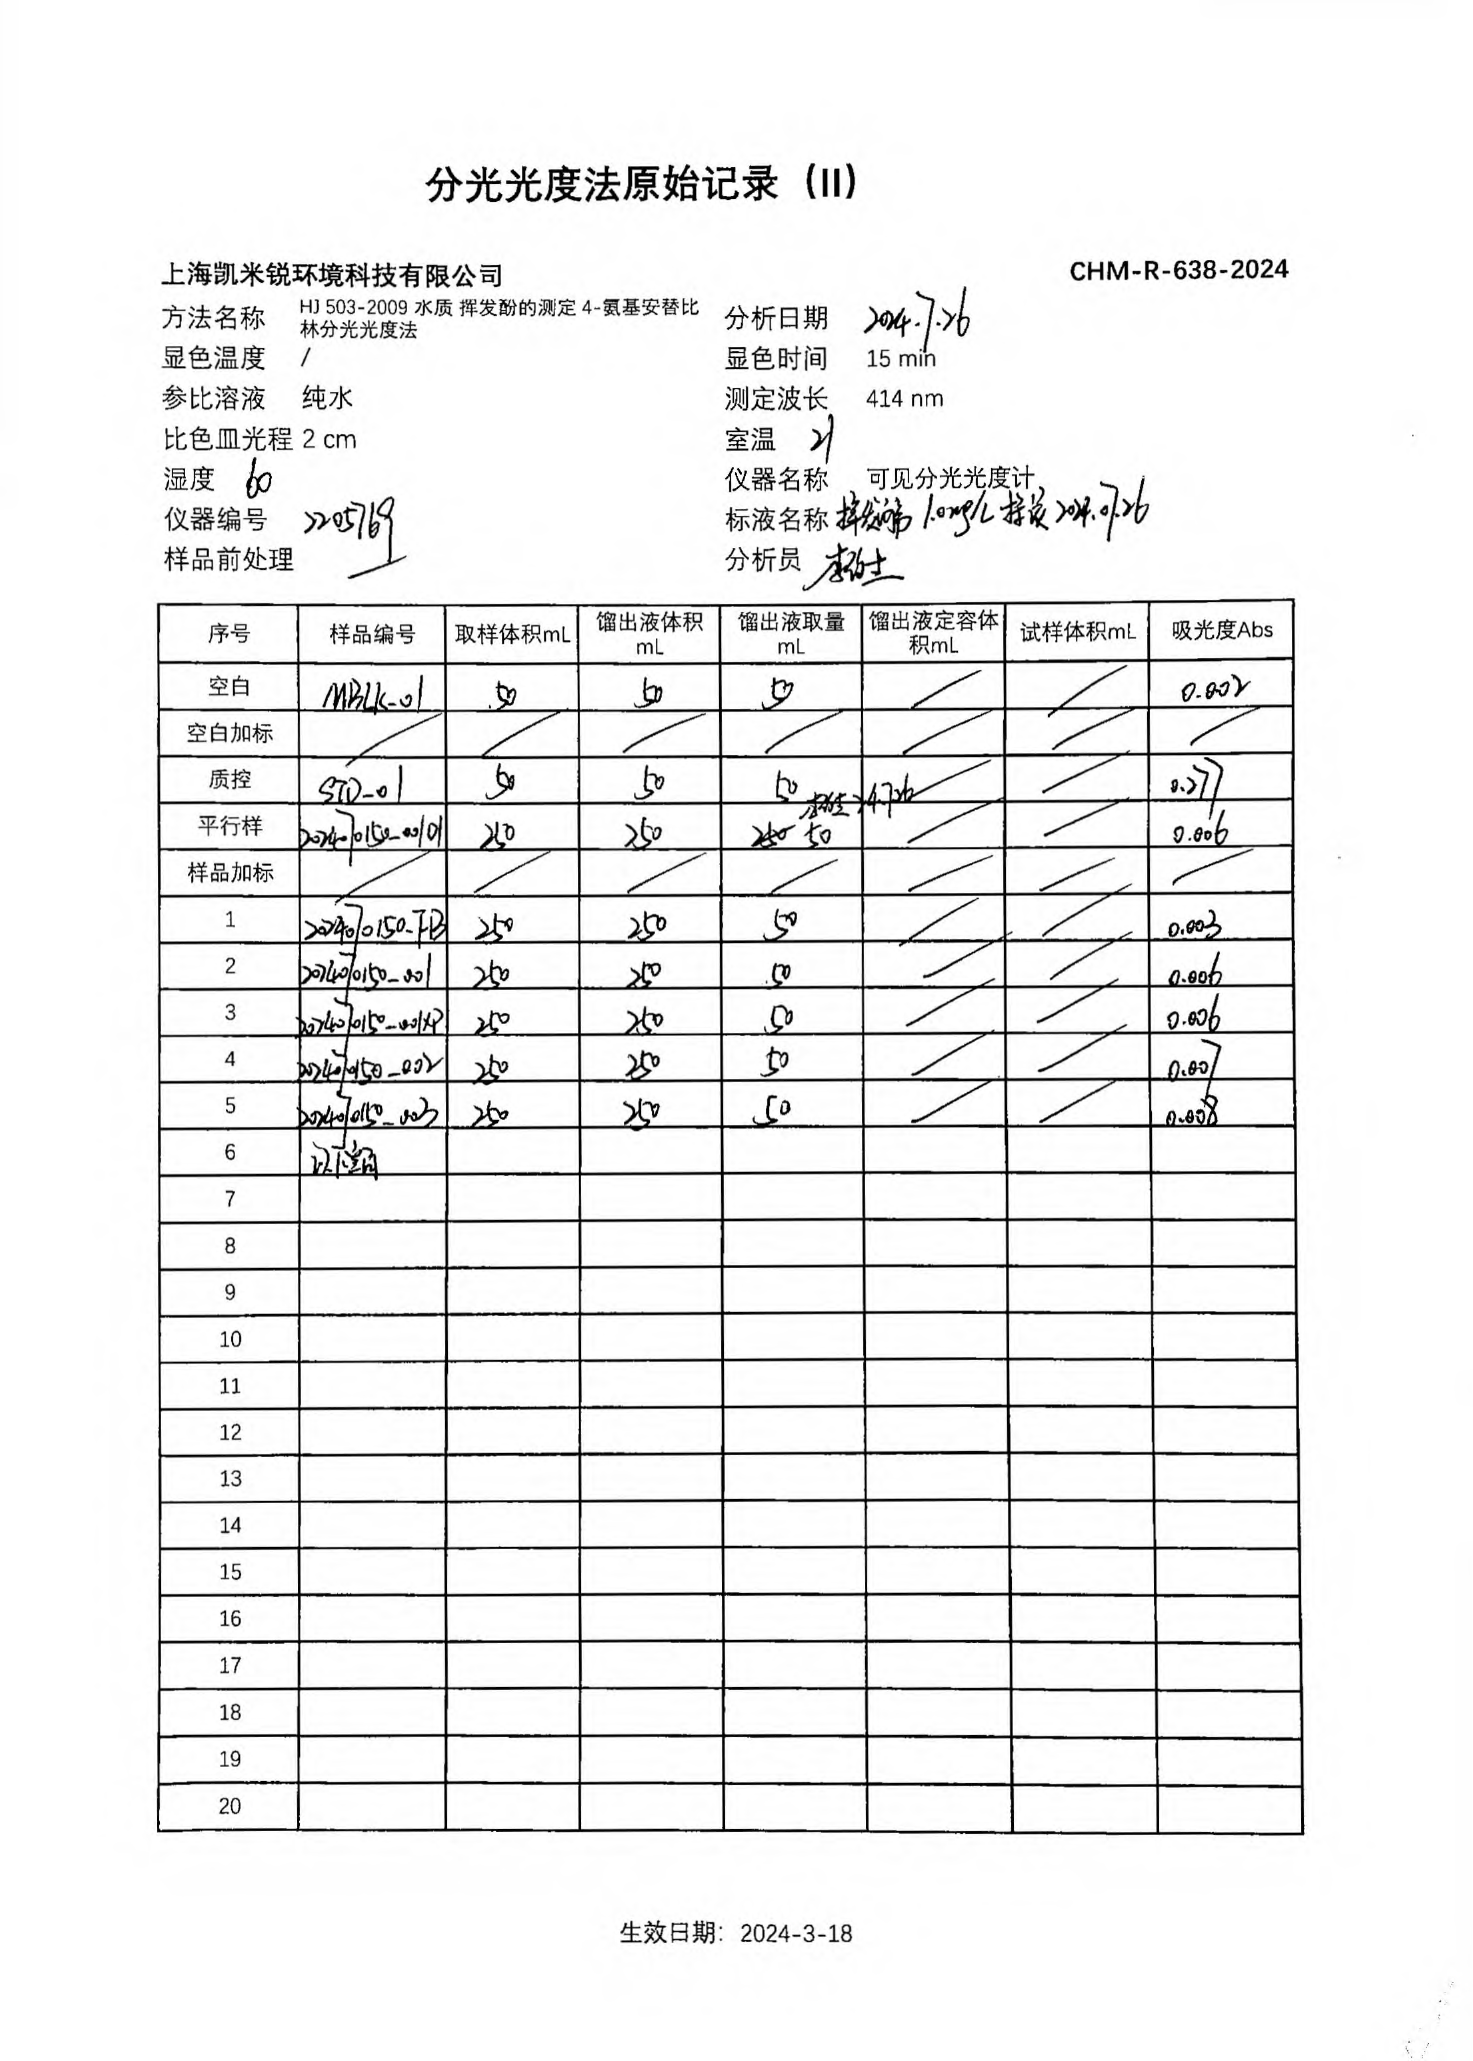 分光光度法原始记录（II）
上海凯米锐环境科技有限公司 CHM-R-638-2024
方法名称 HJ 503-2009 水质 挥发酚的测定 4-氨基安替比林分光光度法 分析日期 2024.7.26
显色温度 / 显色时间 15 min
参比溶液 纯水 测定波长 414 nm
比色皿光程 2 cm 室温 21
湿度 60 仪器名称 可见分光光度计
仪器编号 2205769 标液名称 挥发酚 1.0mg/L 2024.07.26
样品前处理 / 分析员
序号 样品编号 取样体积mL 馏出液体积mL 馏出液取量mL 馏出液定容体积mL 试样体积mL 吸光度Abs
空白 MBLK-01 50 50 50 / / 0.002
空白加标 / / / / / / /
质控 STD-01 50 50 50 / / 0.277
平行样 2024070150-001D1 250 250 250 50 / / 0.006
样品加标 / / / / / / /
1 2024070150-FB 250 250 50 / / 0.003
2 2024070150-001 250 250 50 / / 0.006
3 2024070150-001XP 250 250 50 / / 0.006
4 2024070150-002 250 250 50 / / 0.007
5 2024070150-003 250 250 50 / / 0.008
6 以下空白
7
8
9
10
11
12
13
14
15
16
17
18
19
20
生效日期：2024-3-18